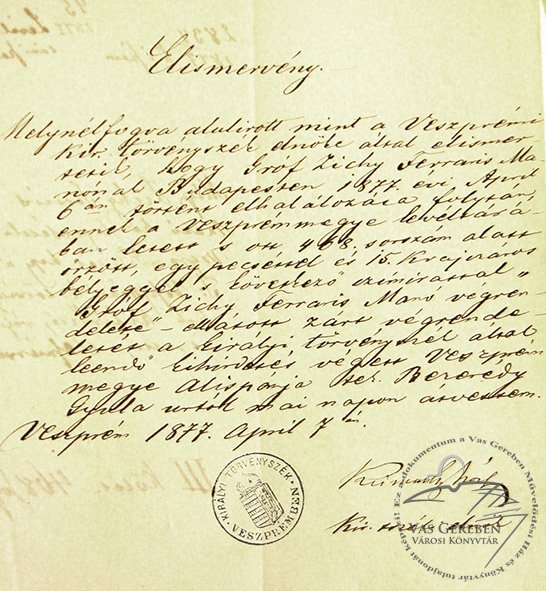 Elismervény.
Melynélfogva alulirott mint a Veszprémi
kir. törvényszék elnöke által elismer
tetik, hogy Gróf Zichy Ferraris Ma
nónak Budapesten 1877. évi April
6án történt elhalálozása folytán,
ennek a Veszprémmegye levéltárá-
ban letett s ott 468. sorszám alatt
őrzött, egy pecséttel és 15. krajczáros
béljeggel s következő czimirattal „
Gróf Zichy Ferraris Manó végren-
delete" - ellátott zárt végrende-
letét a királyi törvényszék által
leendő kihirdetés végett Veszprém
megye Alispánja Bezerédy
Gyula urtól mai napon átvettem.
Veszprém 1877. April 7én
KIRÁLYI TÖRVÉNYSZÉK VESZPRÉMBEN
Kir. elnök
Ez a dokumentum a Vas Gereben Művelődési Ház és Könyvtár tulajdonát képezi!
VAS GEREBEN
VÁROSI KÖNYVTÁR